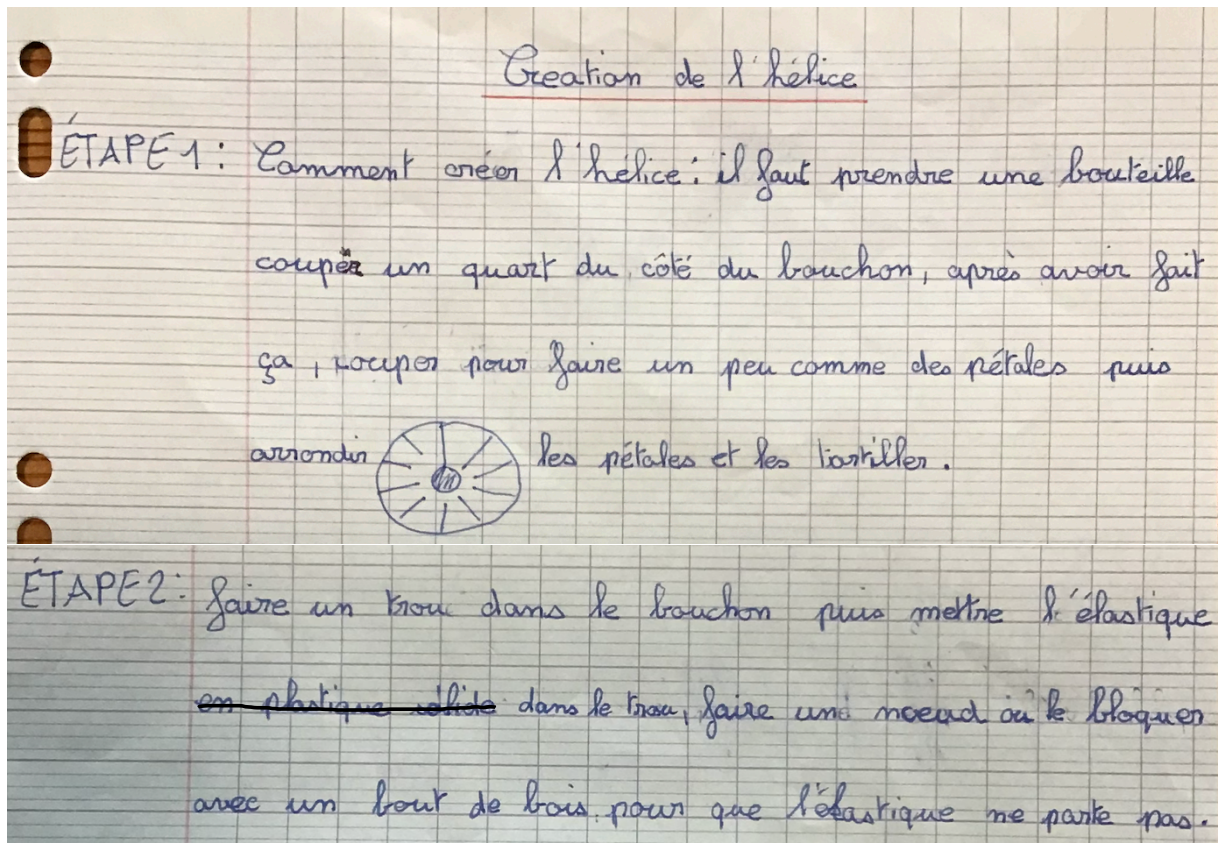 Creation de l'hélice
ÉTAPE 1 : Comment créer l'hélice : il faut prendre une bouteille
couper un quart du côté du bouchon, après avoir fait
ça, couper pour faire un peu comme des pétales puis
arrondir les pétales et les tortiller.
ÉTAPE 2 : faire un trou dans le bouchon puis mettre l'élastique
en plastique solide dans le trou, faire une noeud où le bloquer
avec un bout de bois pour que l'élastique ne parte pas.